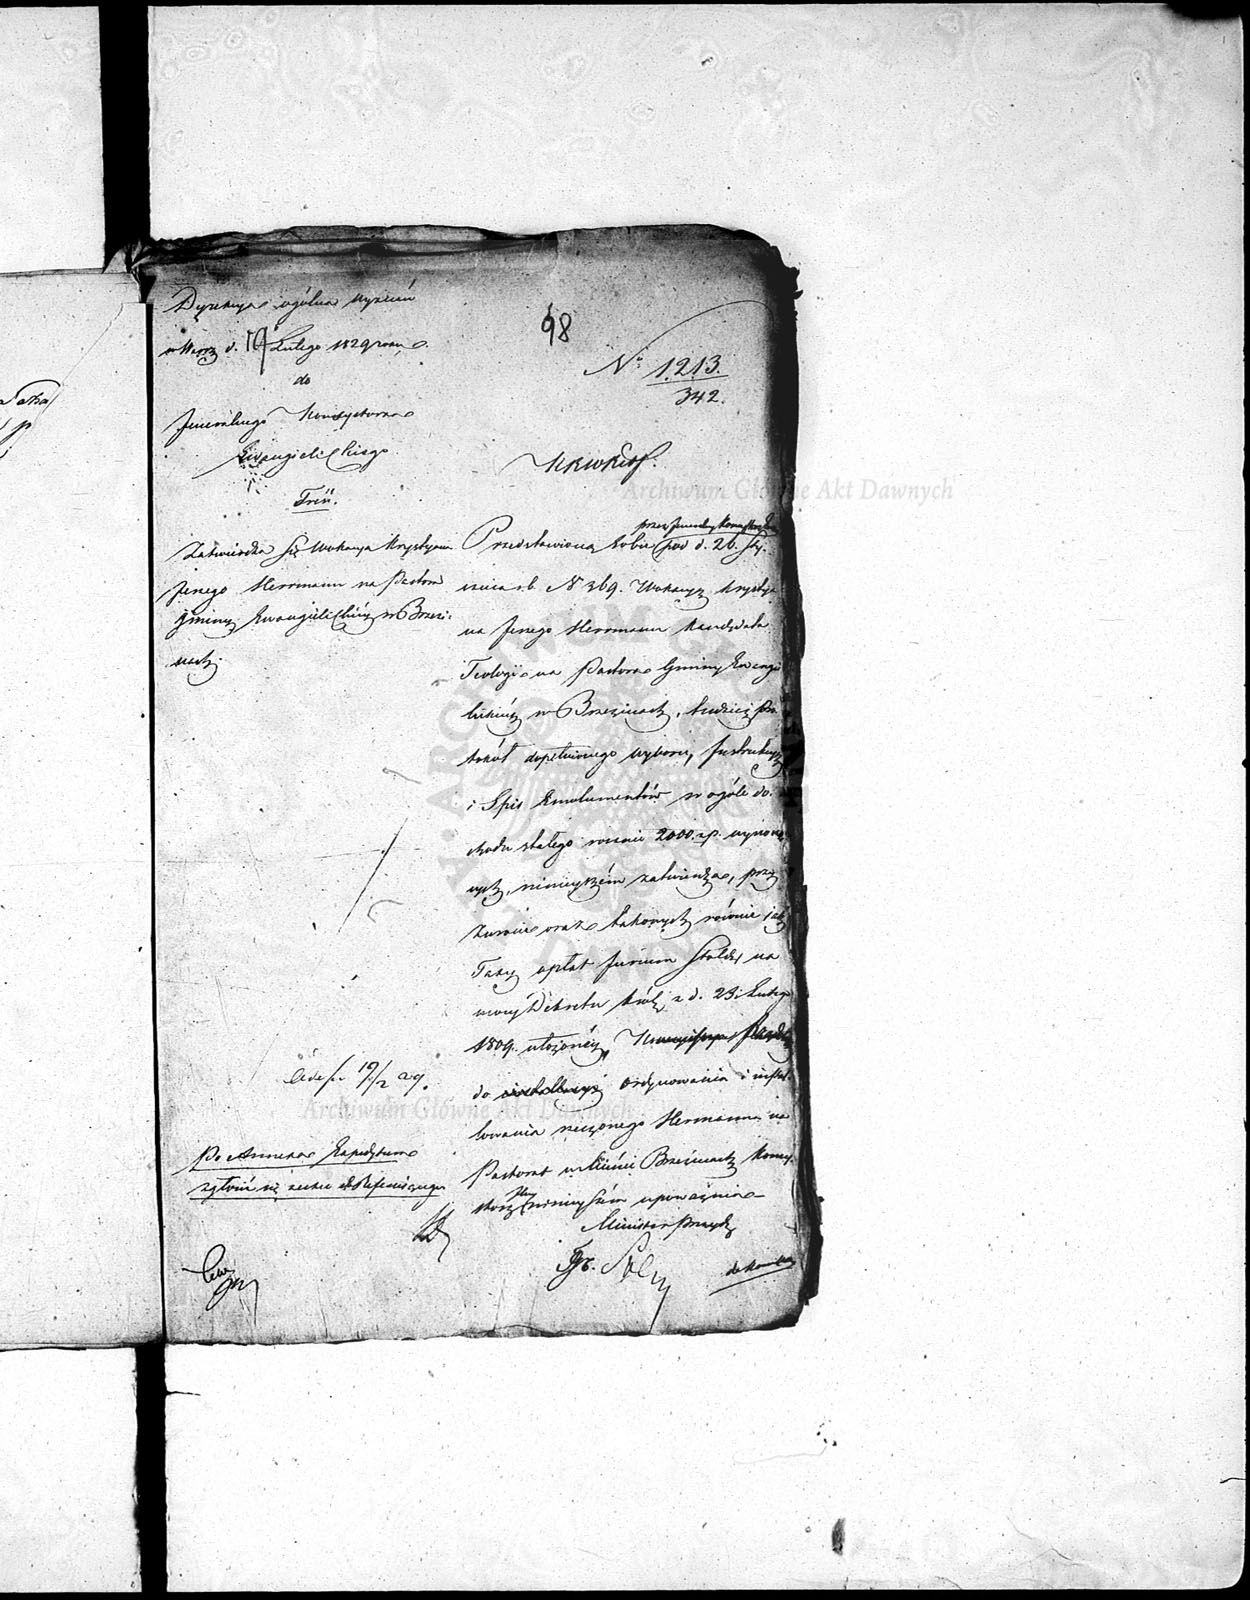 98
Dyrekcya ogólna wyznań
w Warsz. d. 19 Lutego 1829 roku
do
Jeneralnego Konsystorza
Ewangielickiego
Treść.
Zatwierdza się Wokacya Krystyana
Jerzego Herrmann na Pastora
Gminy Ewangielickiéj w Brzezi-
nach.
Nº 1213.
342.
KRWRiOP.
przez Jeneralny Konsystorz
Przedstawioną sobie pod d. 26. Sty-
cznia r. b. Nº 369. Wokacyą Krystya-
na Jerzego Herrmann Kandydata
Teologii na Pastora Gminy Ewangie-
lickiéj w Brzezinach, tudzież Pro-
tokół dopełnionego wyboru, Instrukcyą
i Spis Emolumentów w ogóle do-
chodu stałego rocznie 2000. zp. wyno-
szących, niniejszém zatwierdza, przy
zwrocie oraz takowych równie jak
Taxy opłat Jurium Stolae, na
mocy Dekretu Król. z d. 23. Lutego
1809. ułożonéj,
do ordynowania i instal-
lowania rzeczonego Herrmanna na
Pastorat w Mieście Brzezinach Konsy-
storz niniejszém upoważnia
Minister Prezyd.
de Komblan
19/2 29.
Po Annexa Expedytura
zgłosi się zechce do Referującego
Archiwum Główne Akt Dawnych
Archiwum Główne Akt Dawnych